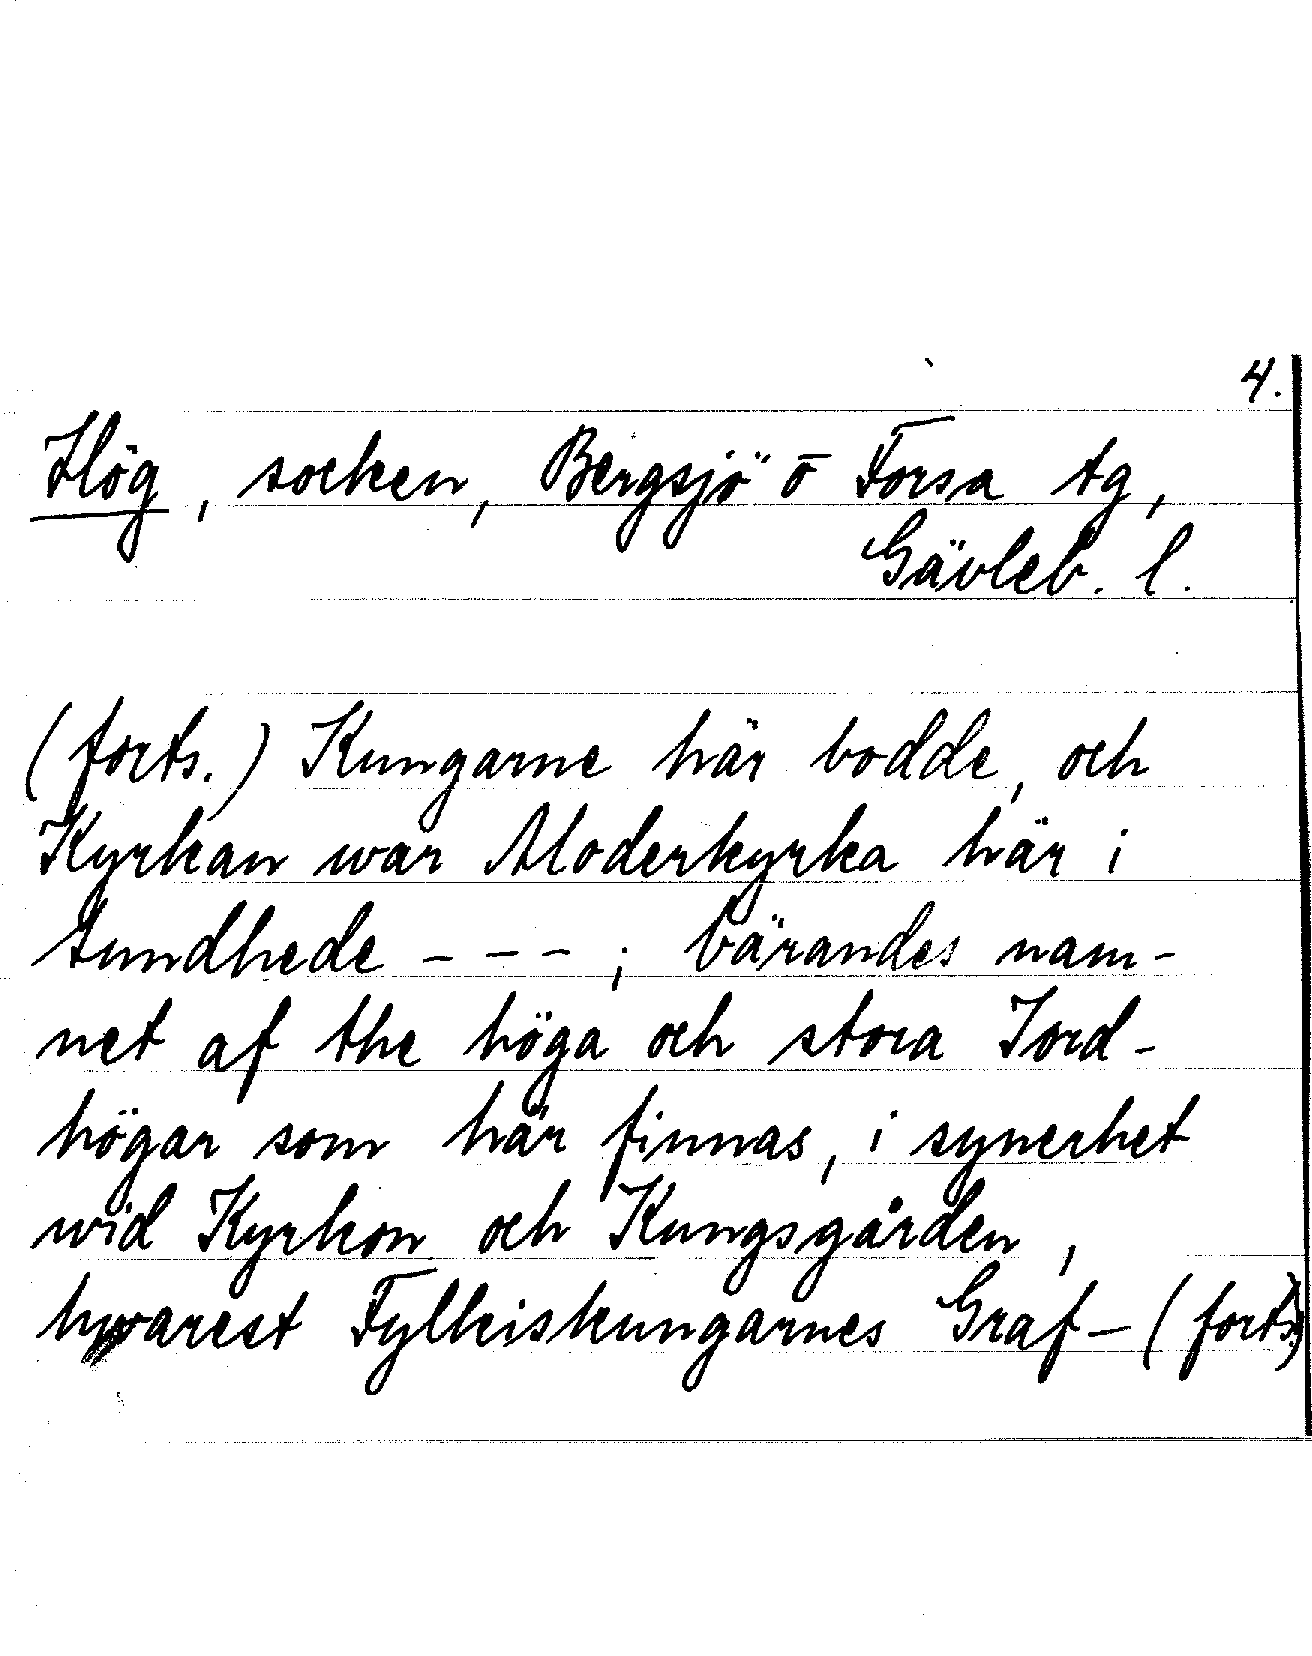 4.
Hög, socken, Bergsjö o Forsa tg,
Gävleb. l.
(forts.) Kungarne här bodde, och
Kyrkan war Moderkyrka här i
Sundhede - - - ; bärandes nam-
net af the höga och stora Jord-
högar som här finnas, i synerhet
wid Kyrkon och Kungsgården,
hwarest Fylkiskungarnes Graf- (forts.)